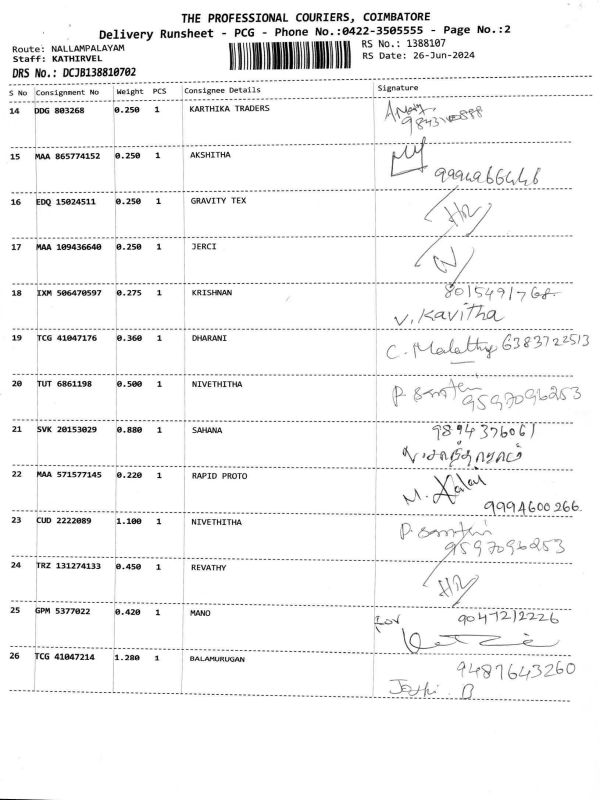 THE PROFESSIONAL COURIERS, COIMBATORE
Delivery Runsheet - PCG - Phone No.:0422-3505555 - Page No.:2
Route: NALLAMPALAYAM
RS No.: 1388107
Staff: KATHIRVEL
RS Date: 26-Jun-2024
DRS No.: DCJB138810702
S No Consignment No Weight PCS Consignee Details Signature
14 DDG 803268 0.250 1 KARTHIKA TRADERS
15 MAA 865774152 0.250 1 AKSHITHA
16 EDQ 15024511 0.250 1 GRAVITY TEX
17 MAA 109436640 0.250 1 JERCI
18 IXM 506470597 0.275 1 KRISHNAN 8015491768
V. Kavitha
19 TCG 41047176 0.360 1 DHARANI C. Malathy 6383722513
20 TUT 6861198 0.500 1 NIVETHITHA P.
9597096253
21 SVK 20153029 0.880 1 SAHANA 9894376061
22 MAA 571577145 0.220 1 RAPID PROTO M. Kalai
9994600266
23 CUD 2222089 1.100 1 NIVETHITHA P.
9597096253
24 TRZ 131274133 0.450 1 REVATHY
25 GPM 5377022 0.420 1 MANO For 9047212226
26 TCG 41047214 1.280 1 BALAMURUGAN 9487643260
Jothi. B